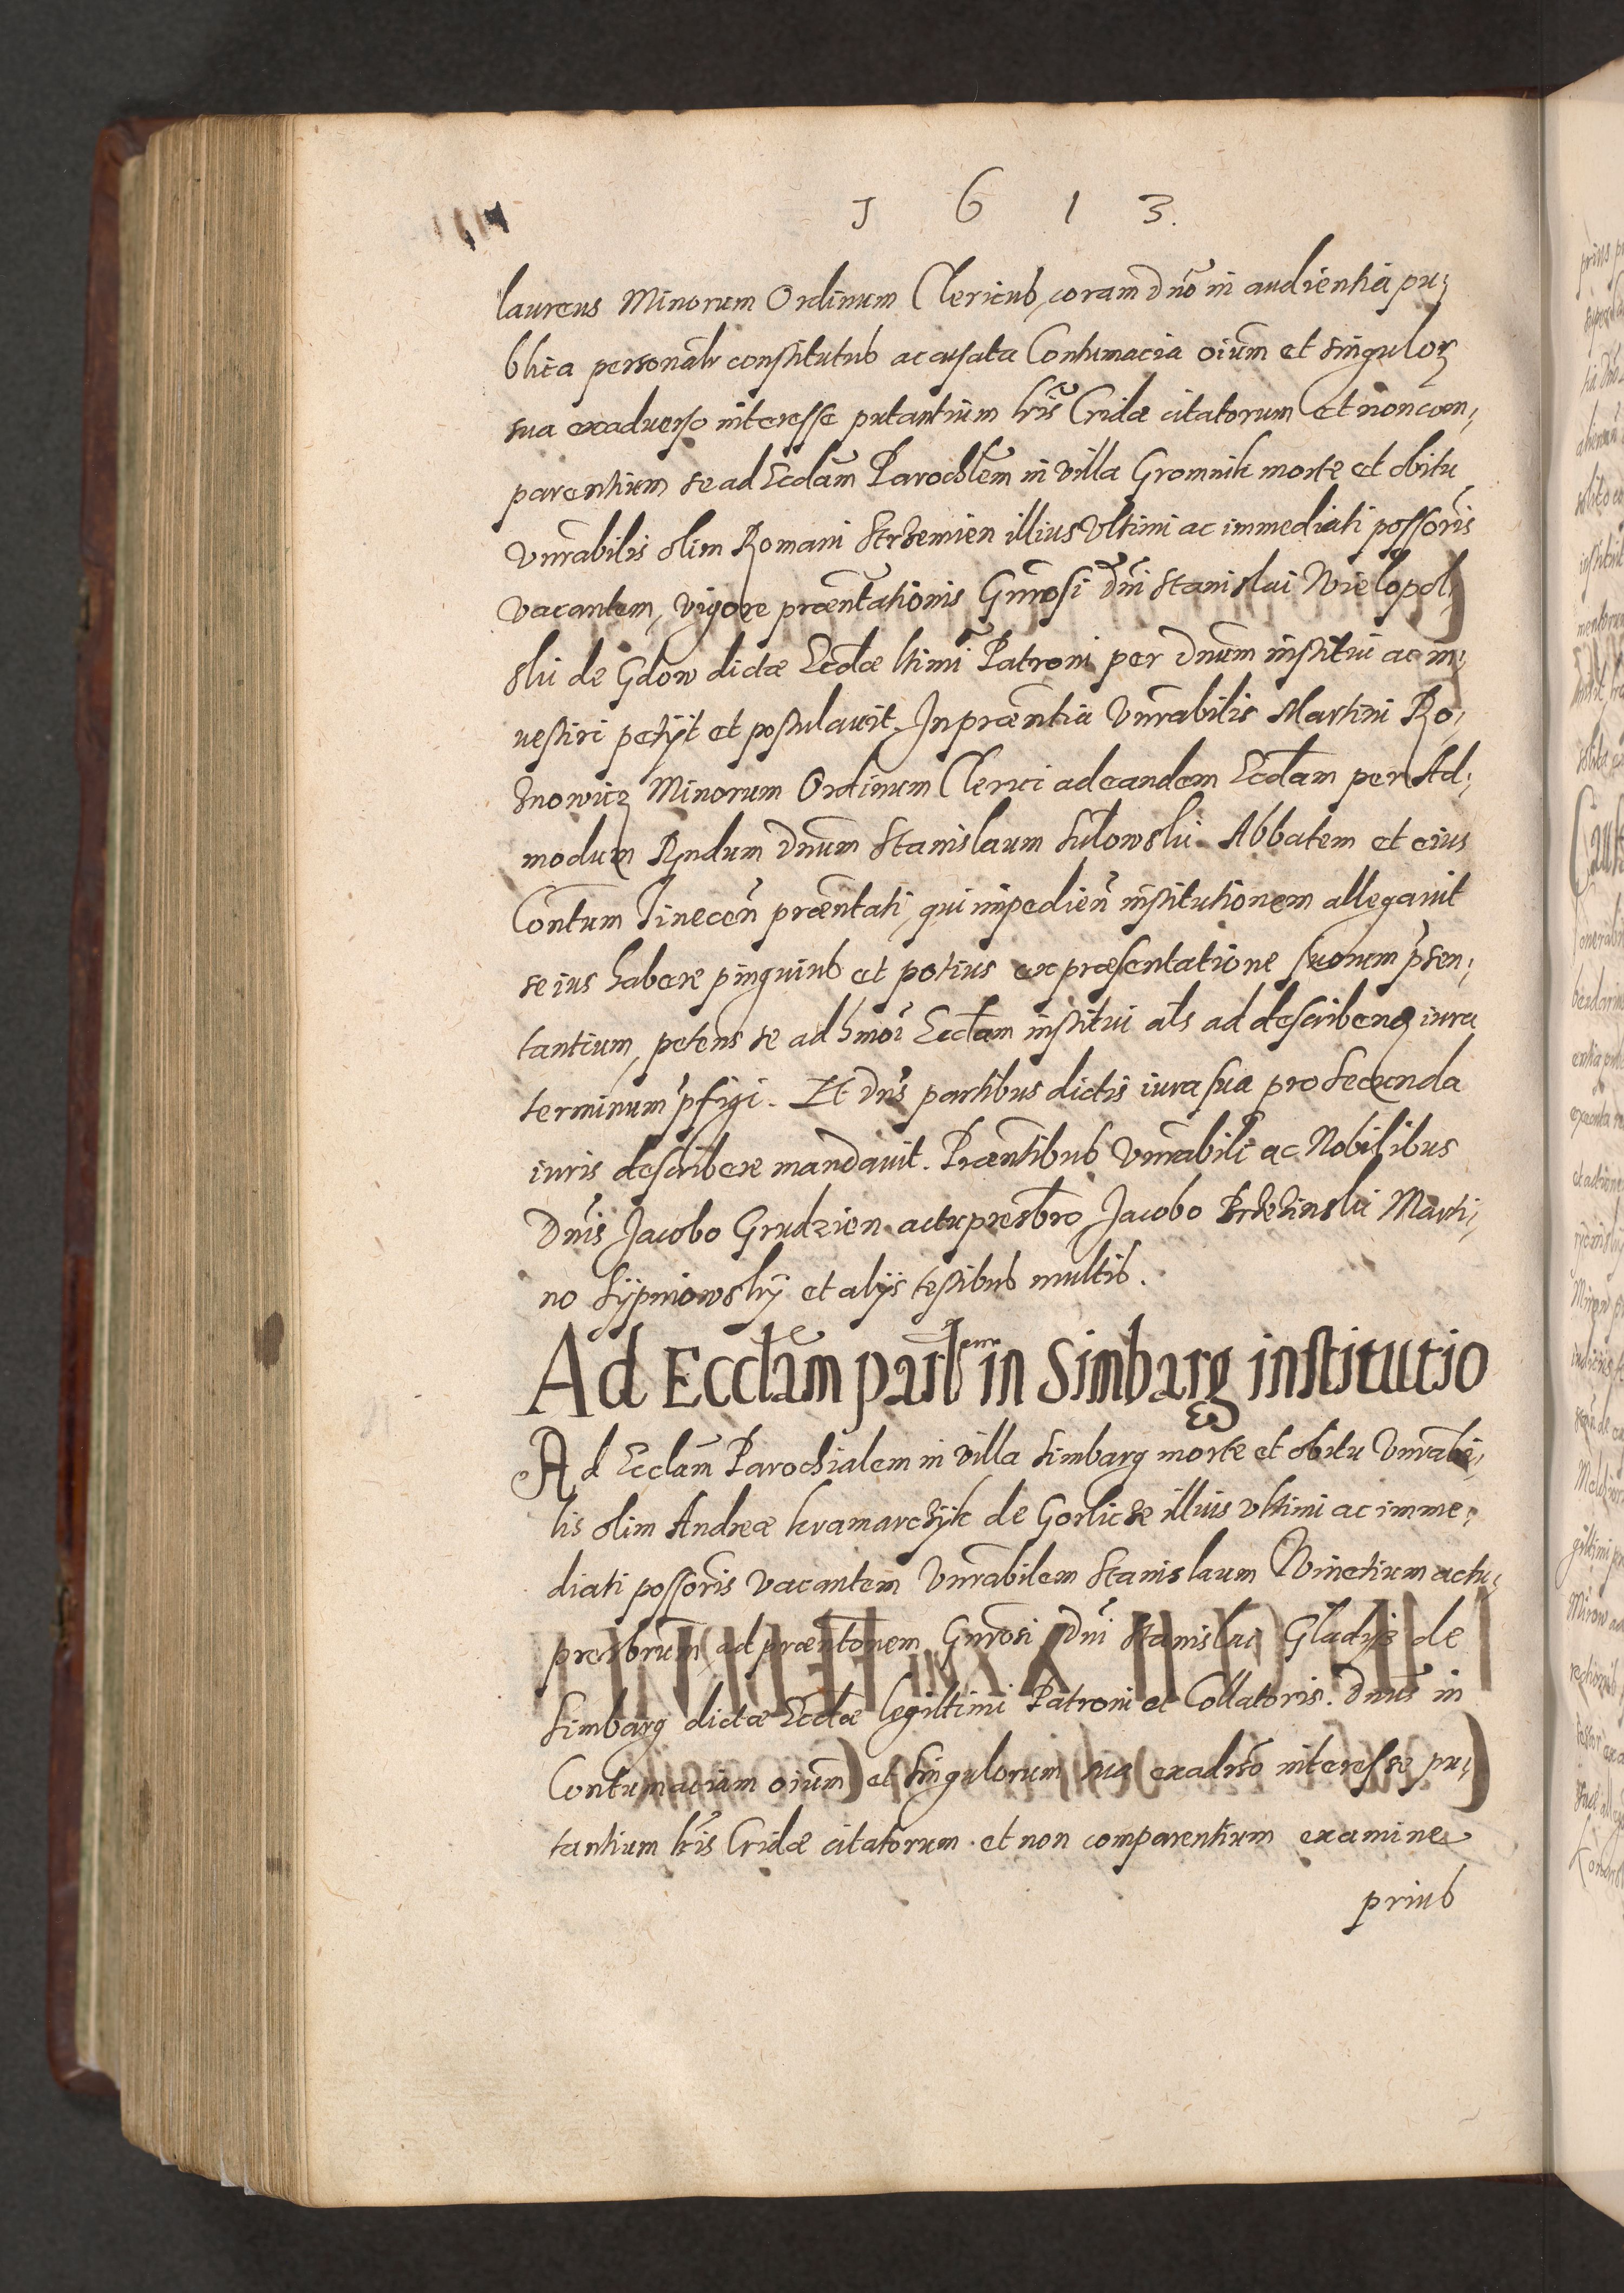 1 6 1 3.
laureus Minorum Ordinum Clericus, coram dno in audientia pu,
blica personalr constitutus accusata Contumacia oium et singulor
sua exaduerso interesse putantium lris Cridæ citatorum et non com,
parentium se ad Eccłam Parochlem in villa Gromnik morte et obitu
Vnrabilis olim Romani Strzemien illius Vltimi ac immediati possoris
vacantem, vigore præntationis Gnrosi Dni Stanislai Wielopol,
ski de Gdow dictæ Eccłæ ltimi Patroni per Dnum institui ac in,
uestiri petijt et postulauit. In præntia Vnrabilis Martini Ro,
żnowicz Minorum Ordinum Clerici ad eandem Eccłam per Ad,
modum Rndum Dnum Stanislaum Sułowski Abbatem et eius
Contum Tinecen præntati, qui impedien institutionem allegauit
se ius habere pinguius et potius ex præsentatione suorum psen,
tantium, petens se ad hmoi Eccłam institui als ad describen iura
terminum pfigi. Et Dns partibus dictis iura sua pro secunda
iuris describere mandauit. Præntibus Vnrabili ac Nobilibus
Dnis Jacobo Grudzien actu presbro Jacobo Brzezinski Marti,
no Sÿpniowskÿ et alijs testibus multis.
Ad Eccłam parlem in Simbarg institutio
Ad Eccłam Parochialem in villa Simbarg morte et obitu Vnrabi,
lis olim Andreæ kramarczÿk de Gorlicze illius vltimi ac imme,
diati possoris vacantem Vnrabilem Stanislaum Winetium actu,
presbrum ad præntonem Gnrosi Dni Stanislai Gladijs de
Simbarg dictæ Eccłæ legittimi Patroni et Collatoris. Dnus in
Contumaciam oium et singulorum sua exadrso interesse pu,
tantium lris Cridæ citatorum et non comparentium examine
prius